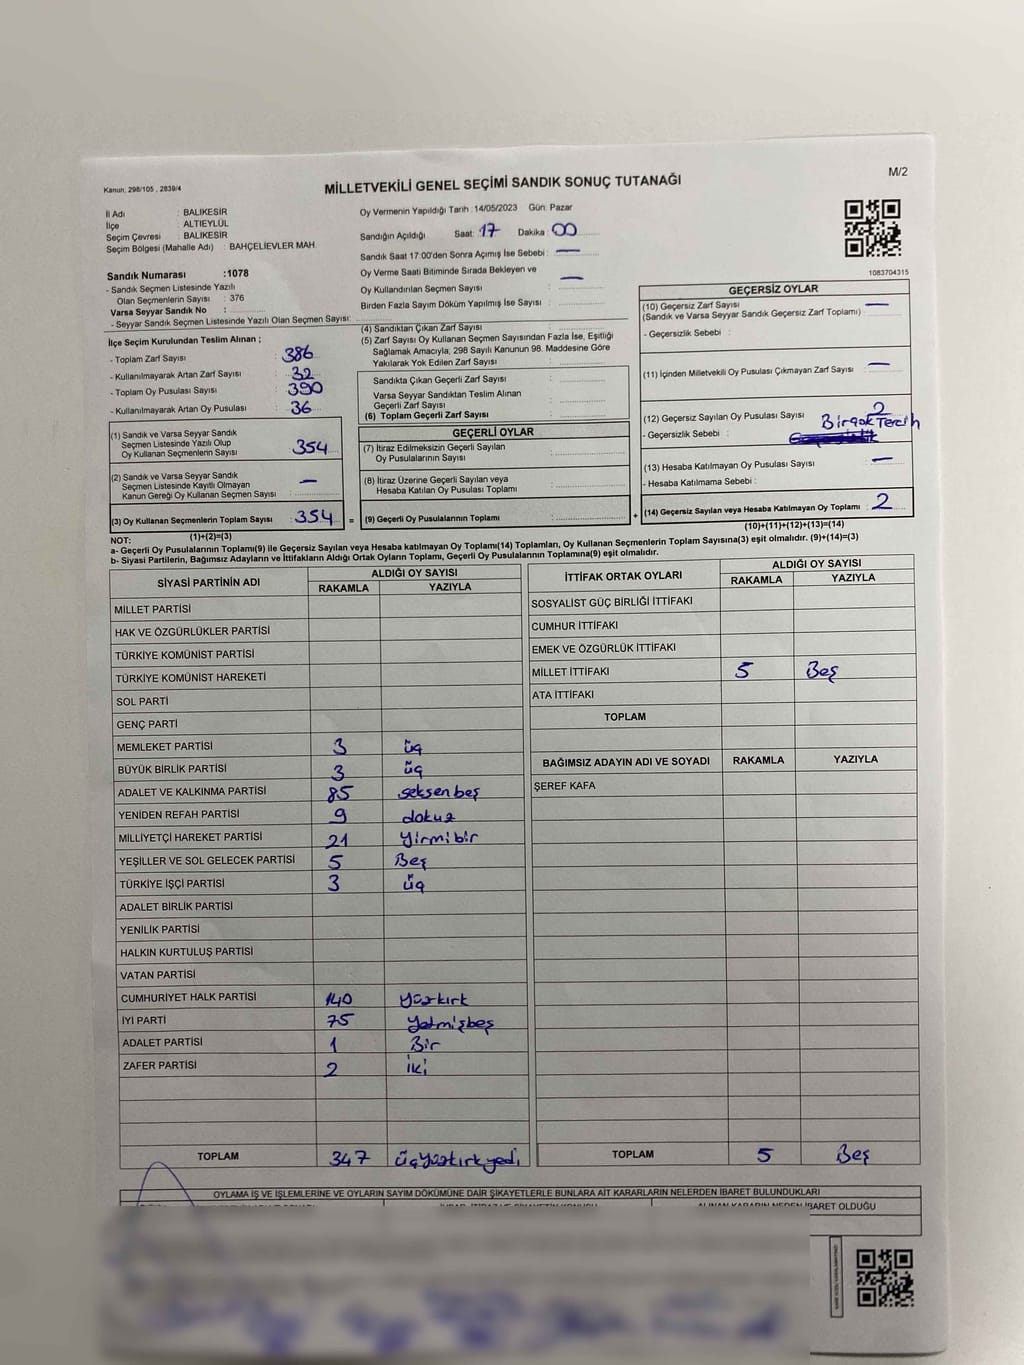 Kanun, 298/105 , 2839/4
MİLLETVEKİLİ GENEL SEÇİMİ SANDIK SONUÇ TUTANAĞI
M/2
İl Adı : BALIKESİR
İlçe : ALTIEYLÜL
Seçim Çevresi : BALIKESİR
Seçim Bölgesi (Mahalle Adı) : BAHÇELİEVLER MAH.
Sandık Numarası :1078
- Sandık Seçmen Listesinde Yazılı
Olan Seçmenlerin Sayısı : 376
Varsa Seyyar Sandık No :
- Seyyar Sandık Seçmen Listesinde Yazılı Olan Seçmen Sayısı:
Oy Vermenin Yapıldığı Tarih :14/05/2023 Gün: Pazar
Sandığın Açıldığı Saat: 17 Dakika : 00
Sandık Saat 17:00'den Sonra Açımış İse Sebebi : —
Oy Verme Saati Bitiminde Sırada Bekleyen ve
Oy Kullandırılan Seçmen Sayısı : —
Birden Fazla Sayım Döküm Yapılmış İse Sayısı :
1083704315
İlçe Seçim Kurulundan Teslim Alınan ;
- Toplam Zarf Sayısı : 386
- Kullanılmayarak Artan Zarf Sayısı : 32
- Toplam Oy Pusulası Sayısı : 390
- Kullanılmayarak Artan Oy Pusulası : 36
(1) Sandık ve Varsa Seyyar Sandık
Seçmen Listesinde Yazılı Olup
Oy Kullanan Seçmenlerin Sayısı : 354
(2) Sandık ve Varsa Seyyar Sandık
Seçmen Listesinde Kayıtlı Olmayan
Kanun Gereği Oy Kullanan Seçmen Sayısı : —
(3) Oy Kullanan Seçmenlerin Toplam Sayısı : 354 =
(1)+(2)=(3)
(4) Sandıktan Çıkan Zarf Sayısı :
(5) Zarf Sayısı Oy Kullanan Seçmen Sayısından Fazla İse, Eşitliği
Sağlamak Amacıyla, 298 Sayılı Kanunun 98. Maddesine Göre
Yakılarak Yok Edilen Zarf Sayısı :
Sandıkta Çıkan Geçerli Zarf Sayısı :
Varsa Seyyar Sandıktan Teslim Alınan
Geçerli Zarf Sayısı :
(6) Toplam Geçerli Zarf Sayısı :
GEÇERLİ OYLAR
(7) İtiraz Edilmeksizin Geçerli Sayılan
Oy Pusulalarının Sayısı :
(8) İtiraz Üzerine Geçerli Sayılan veya
Hesaba Katılan Oy Pusulası Toplamı :
(9) Geçerli Oy Pusulalarının Toplamı : +
GEÇERSİZ OYLAR
(10) Geçersiz Zarf Sayısı : —
(Sandık ve Varsa Seyyar Sandık Geçersiz Zarf Toplamı)
- Geçersizlik Sebebi :
(11) İçinden Milletvekili Oy Pusulası Çıkmayan Zarf Sayısı : —
(12) Geçersiz Sayılan Oy Pusulası Sayısı : 2
- Geçersizlik Sebebi : Birçok Tercih
(13) Hesaba Katılmayan Oy Pusulası Sayısı : —
- Hesaba Katılmama Sebebi :
(14) Geçersiz Sayılan veya Hesaba Katılmayan Oy Toplamı : 2
(10)+(11)+(12)+(13)=(14)
NOT:
a- Geçerli Oy Pusulasının Toplamı(9) ile Geçersiz Sayılan veya Hesaba katılmayan Oy Toplamı(14) Toplamları, Oy Kullanan Seçmenlerin Toplam Sayısına(3) eşit olmalıdır. (9)+(14)=(3)
b- Siyasi Partilerin, Bağımsız Adayların ve İttifakların Aldığı Ortak Oyların Toplamı, Geçerli Oy Pusulalarının Toplamına(9) eşit olmalıdır.
SİYASİ PARTİNİN ADI ALDIĞI OY SAYISI
RAKAMLA YAZIYLA
MİLLET PARTİSİ
HAK VE ÖZGÜRLÜKLER PARTİSİ
TÜRKİYE KOMÜNİST PARTİSİ
TÜRKİYE KOMÜNİST HAREKETİ
SOL PARTİ
GENÇ PARTİ
MEMLEKET PARTİSİ 3 üç
BÜYÜK BİRLİK PARTİSİ 3 üç
ADALET VE KALKINMA PARTİSİ 85 seksen beş
YENİDEN REFAH PARTİSİ 9 dokuz
MİLLİYETÇİ HAREKET PARTİSİ 21 yirmibir
YEŞİLLER VE SOL GELECEK PARTİSİ 5 Beş
TÜRKİYE İŞÇİ PARTİSİ 3 üç
ADALET BİRLİK PARTİSİ
YENİLİK PARTİSİ
HALKIN KURTULUŞ PARTİSİ
VATAN PARTİSİ
CUMHURİYET HALK PARTİSİ 140 yüzkırk
İYİ PARTİ 75 yetmişbeş
ADALET PARTİSİ 1 Bir
ZAFER PARTİSİ 2 iki
TOPLAM 347 üçyüzkırkyedi
İTTİFAK ORTAK OYLARI ALDIĞI OY SAYISI
RAKAMLA YAZIYLA
SOSYALİST GÜÇ BİRLİĞİ İTTİFAKI
CUMHUR İTTİFAKI
EMEK VE ÖZGÜRLÜK İTTİFAKI
MİLLET İTTİFAKI 5 Beş
ATA İTTİFAKI
TOPLAM
BAĞIMSIZ ADAYIN ADI VE SOYADI RAKAMLA YAZIYLA
ŞEREF KAFA
TOPLAM 5 Beş
OYLAMA İŞ VE İŞLEMLERİNE VE OYLARIN SAYIM DÖKÜMÜNE DAİR ŞİKAYETLERLE BUNLARA AİT KARARLARIN NELERDEN İBARET BULUNDUKLARI
ALINAN KARARIN NEDEN İBARET OLDUĞU